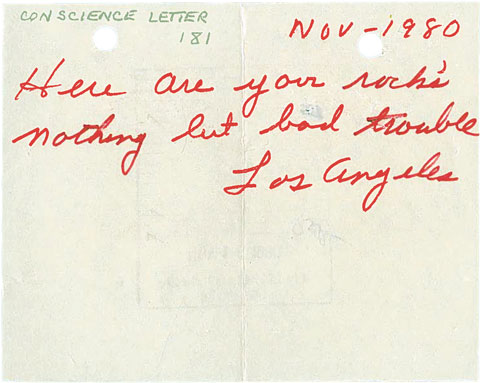 CONSCIENCE LETTER
181
Nov-1980
Here are your rock's
nothing but bad trouble
Los Angeles